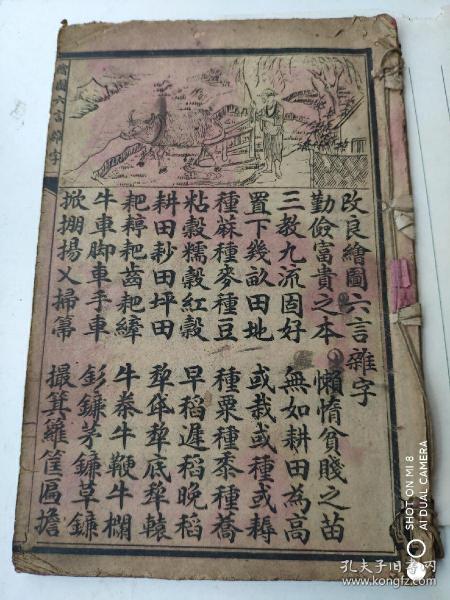 改良繪圖六言雜字
勤儉富貴之本 懶惰貧賤之苗
三教九流固好 無如耕田為高
置下幾畝田地 或栽或種或耨
種蔴種麥種豆 種粟種黍種蕎
粘穀糯穀紅穀 早稻遲稻晚稻
耕田耖田坪田 犂犂底犂轅
耙耙齒耙縴 牛牛鞭牛欄
牛車脚車手車 彭鐮茅鐮草鐮
掀掤揚乂掃箒 撮箕籮筐匾擔
繪圖六言雜字
SHOT ON MI 8
AI DUAL CAMERA
孔夫子旧书网
kongfz.com